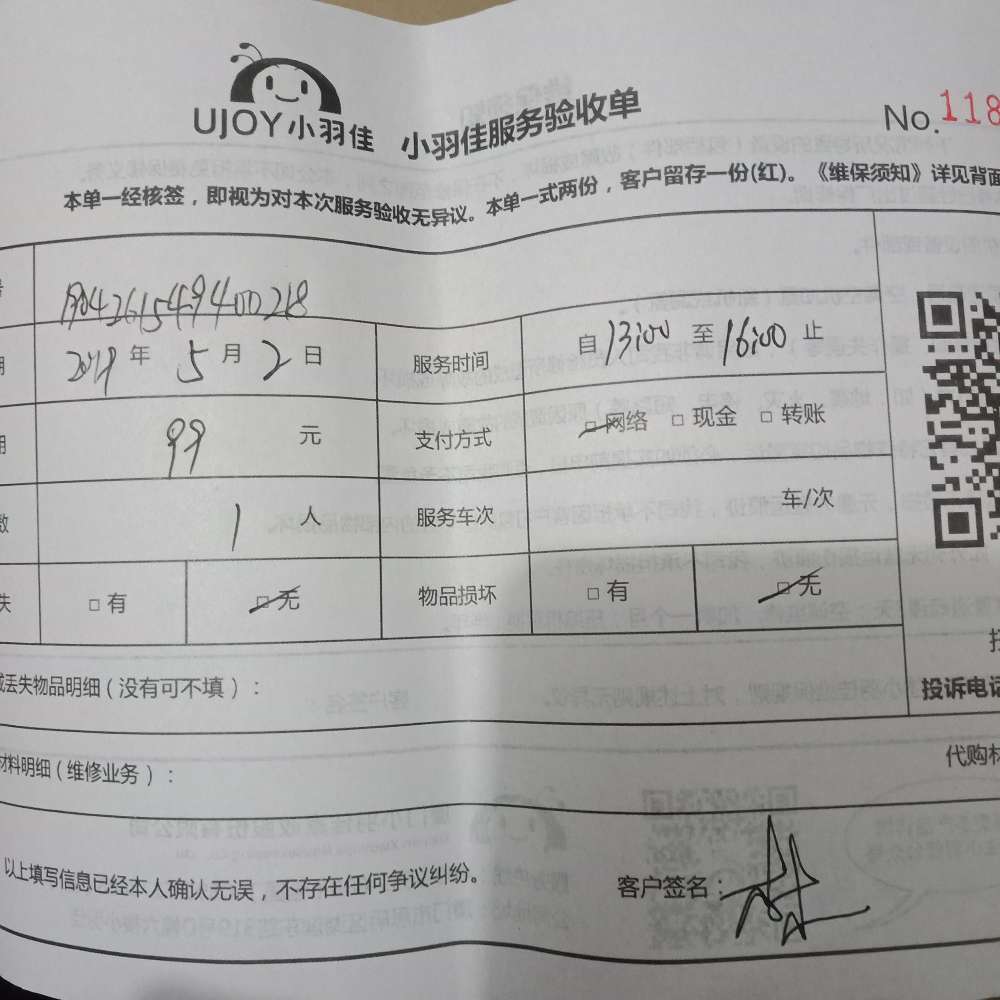 UJOY小羽佳 小羽佳服务验收单 No.118
本单一经核签，即视为对本次服务验收无异议。本单一式两份，客户留存一份(红)。《维保须知》详见背面
2019年5月2日 服务时间 自13:00至16:00止
99元 支付方式 □网络 □现金 □转账
1人 服务车次 车/次
失 □有 □无 物品损坏 □有 □无
丢失物品明细（没有可不填）：
投诉电话
材料明细（维修业务）： 代购材
以上填写信息已经本人确认无误，不存在任何争议纠纷。 客户签名：